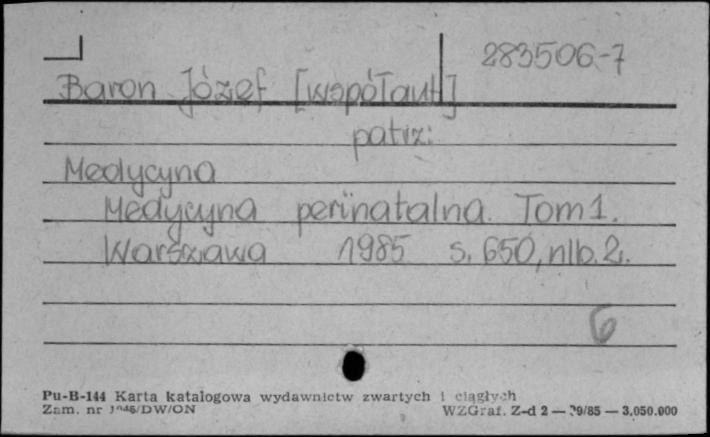 283506-7
Baron Józef [współaut]
patrz:
Medycyna
Medycyna perinatalna. Tom 1.
Warszawa 1985 s. 650, nlb. 2.
6
Pu-B-144 Karta katalogowa wydawnictw zwartych i ciągłych
Zam. nr /DW/ON WZGraf. Z-d 2 — 9/85 — 3,050.000